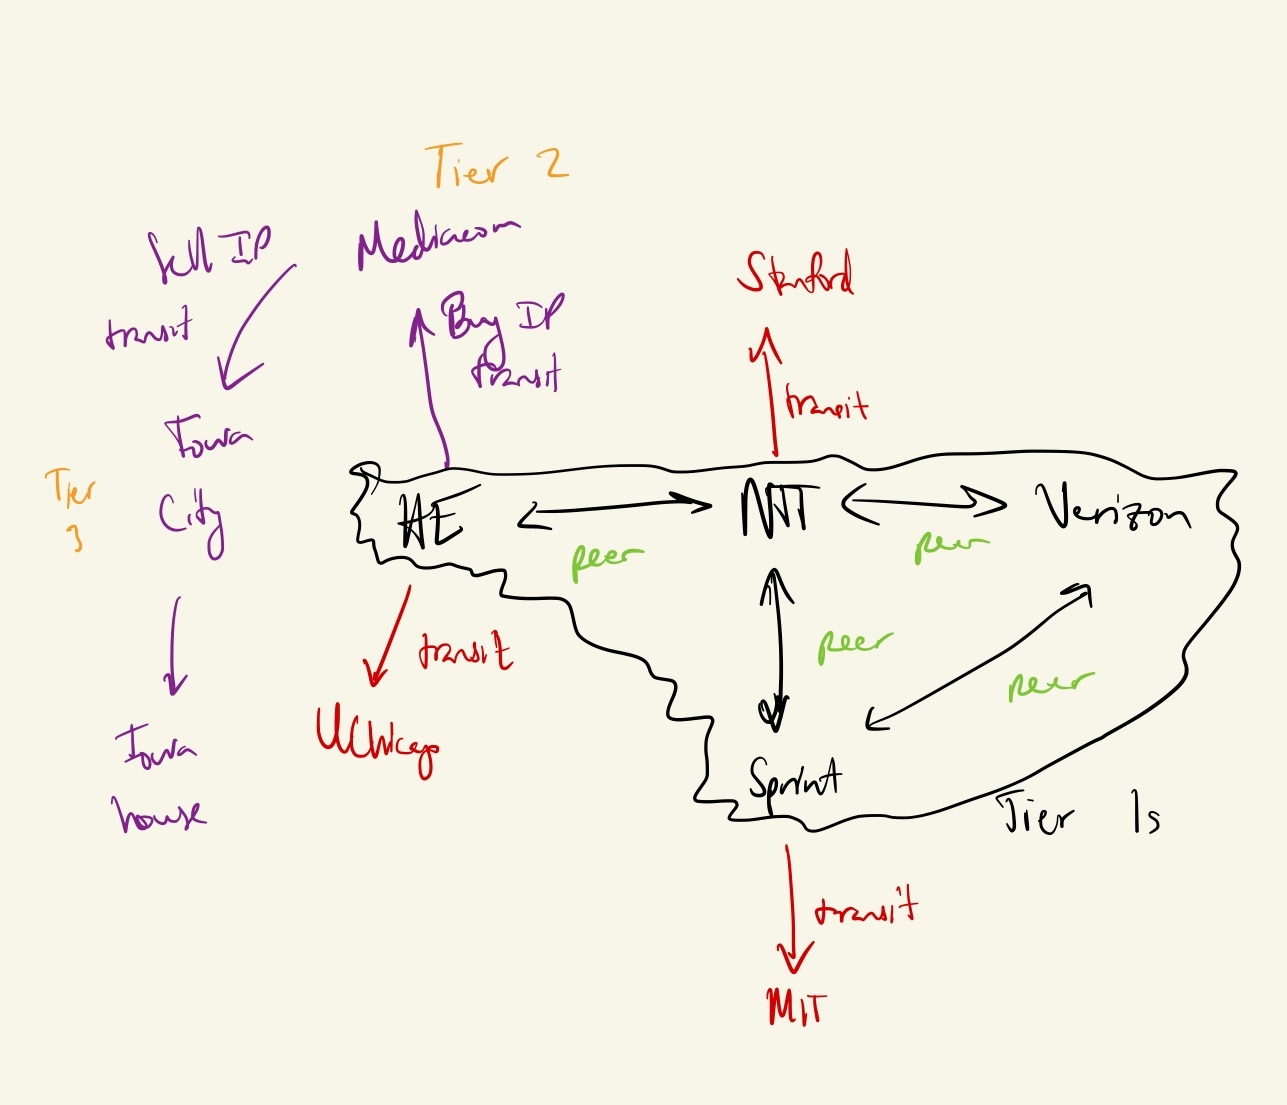 Tier 2
Sell IP
transit
Mediacom
Buy IP
transit
Stanford
transit
Iowa
City
Tier
3
HE
NTT
Verizon
peer
peer
peer
peer
transit
UChicago
Iowa
house
Sprint
Tier 1s
transit
MIT